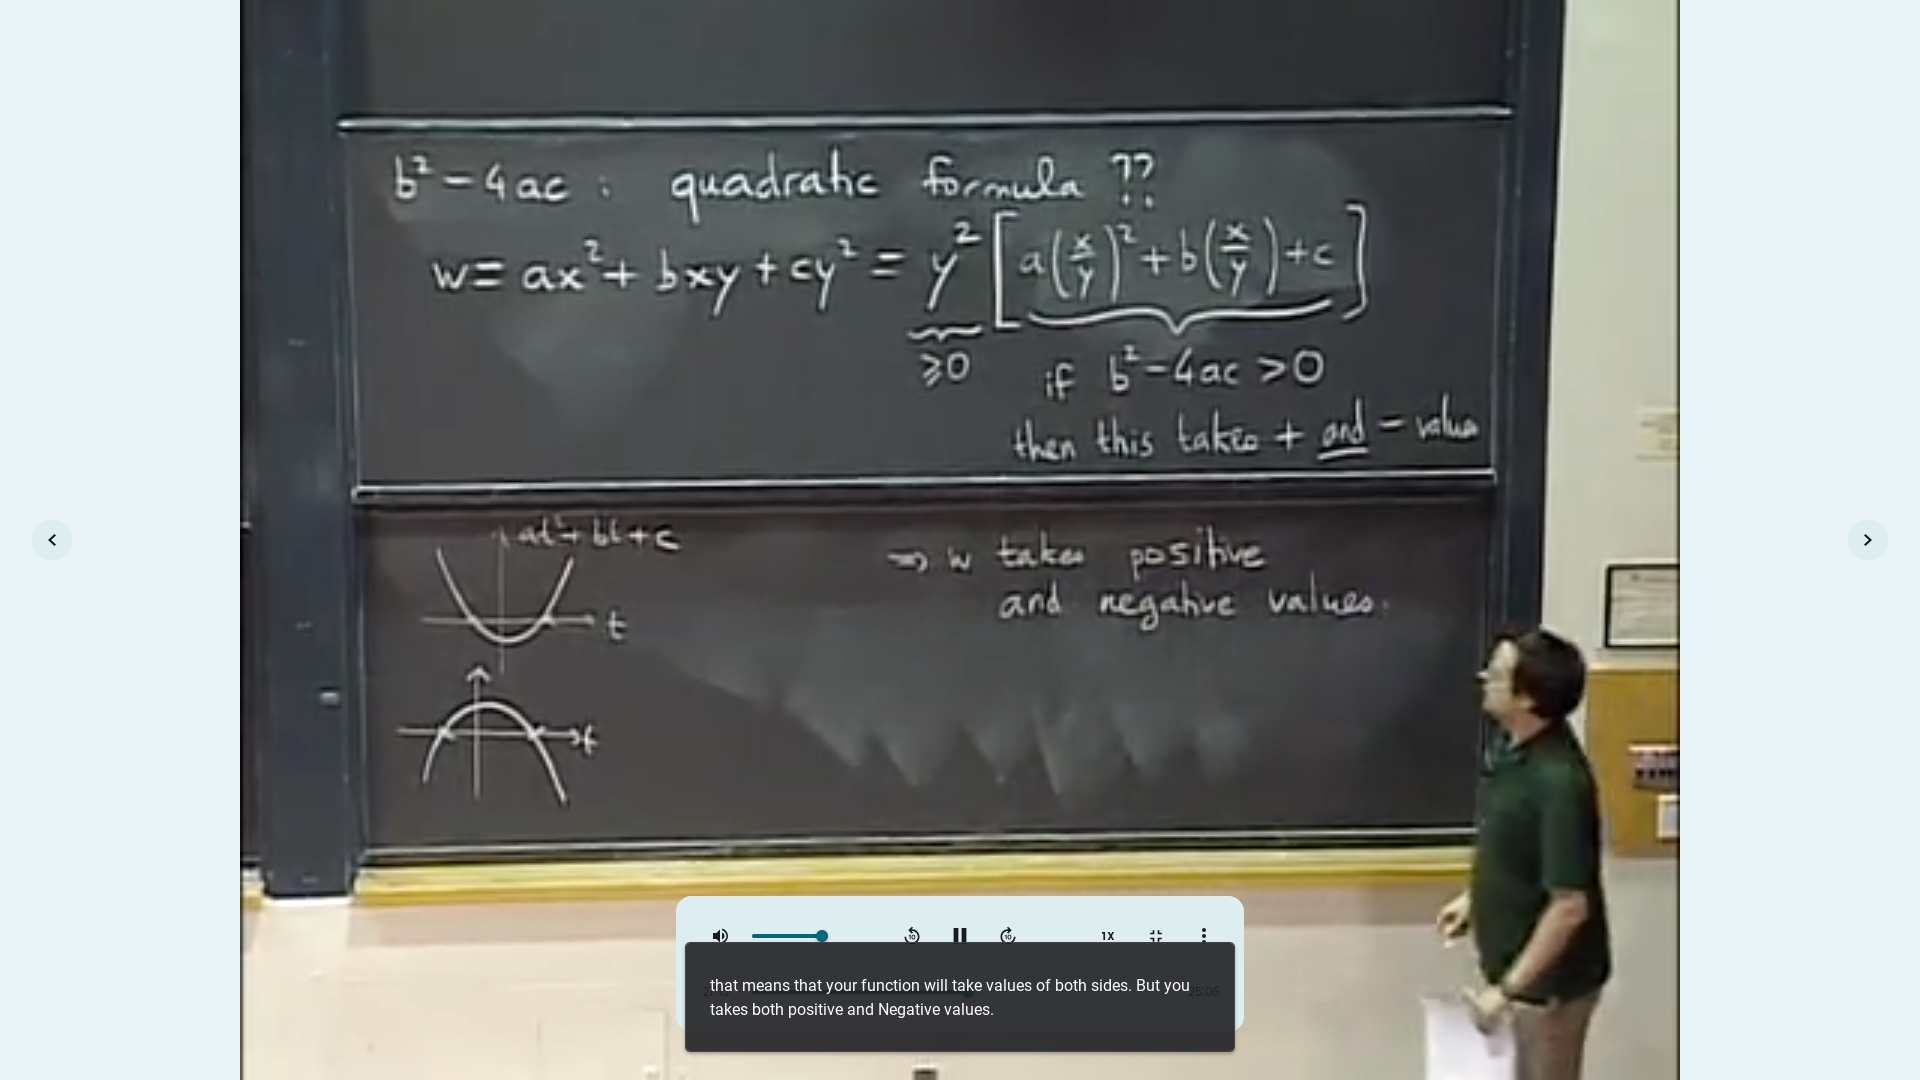 b² - 4ac : quadratic formula ??
w = ax² + bxy + cy² = y² [a(x/y)² + b(x/y) + c]
≥0 if b² - 4ac > 0
then this takes + and - values
at² + bt + c
t
t
⇒ w takes positive
and negative values.
10 10 1X
25:05
that means that your function will take values of both sides. But you
takes both positive and Negative values.